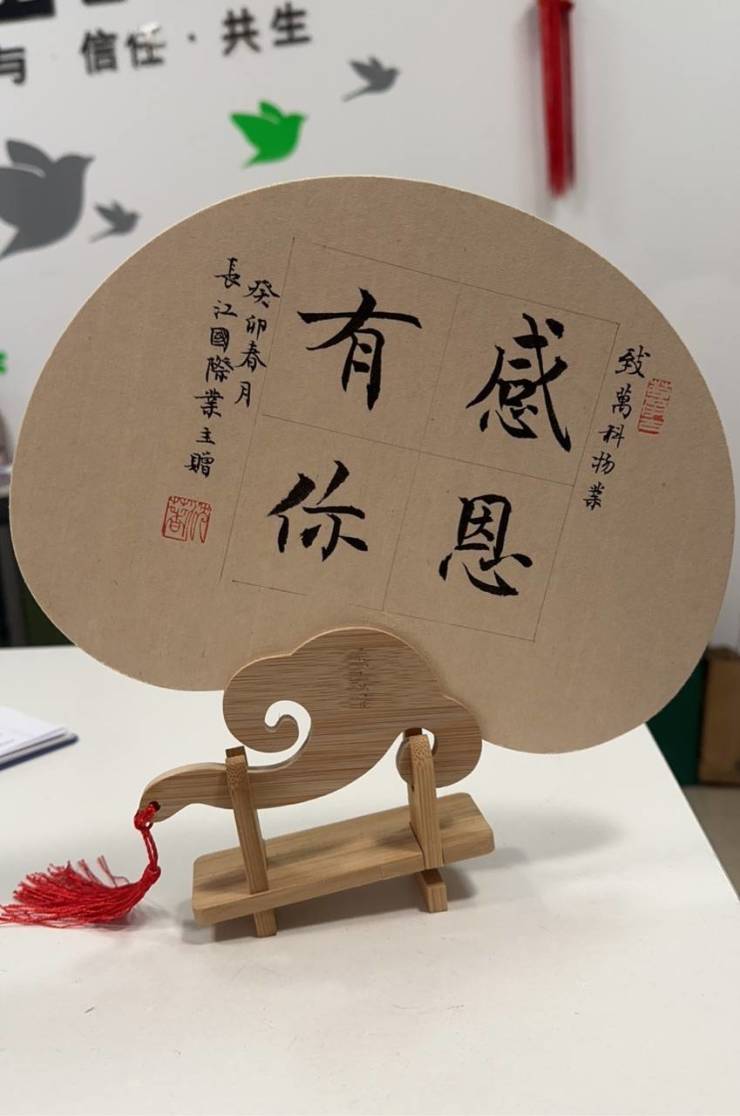 与 信任·共生
致萬科物業
感恩
有你
癸卯春月
長江國際業主贈